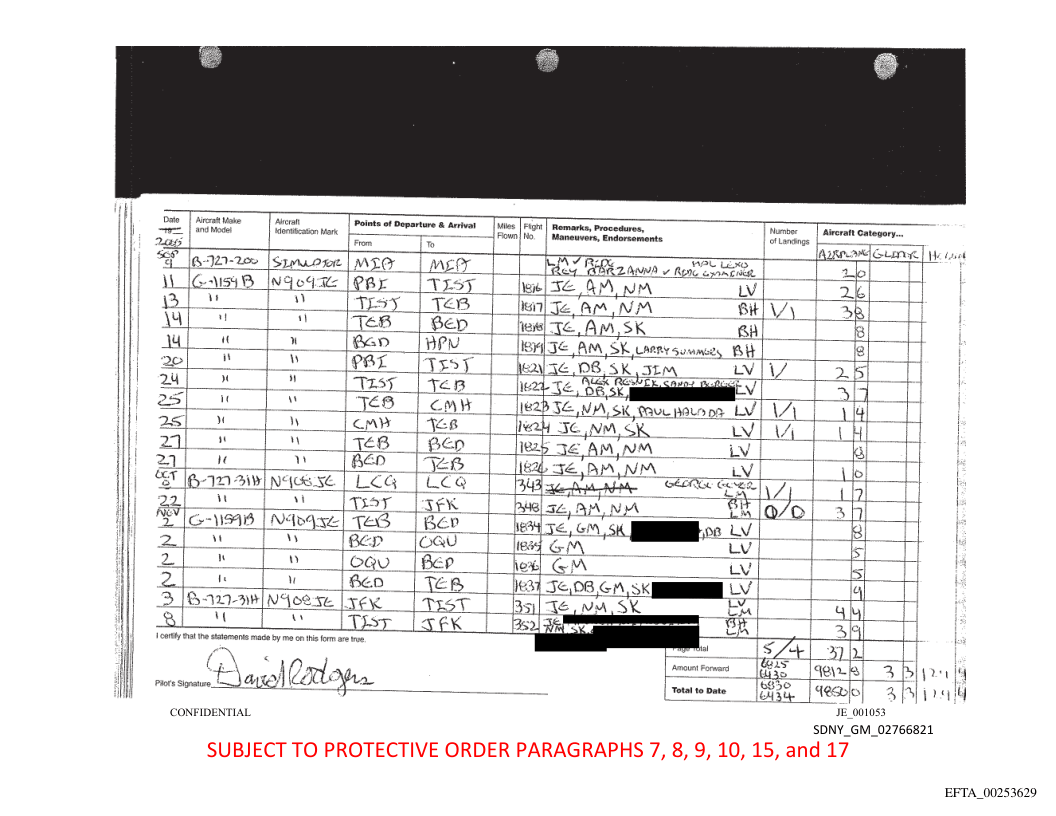 Date Aircraft Make and Model Aircraft Identification Mark Points of Departure & Arrival From To Miles Flown Flight No. Remarks, Procedures, Maneuvers, Endorsements Number of Landings Aircraft Category...
19
2005 AIRPLANE GLIDER
SEP 9 B-727-200 SIMULATOR MIA MIA 20
REY BARZANNA
11 G-1159B N909JE PBI TIST 1816 JE, AM, NM LV 26
13 " " TIST TEB 1817 JE, AM, NM BH 1/1 38
14 " " TEB BED 1818 JE, AM, SK BH 8
14 " " BED HPN 1819 JE, AM, SK, LARRY SUMMERS BH 8
20 " " PBI TIST 1821 JE, DB, SK, JIM LV 1/ 25
24 " " TIST TEB 1822 JE, DB, SK, LV 37
25 " " TEB CMH 1823 JE, NM, SK, PAUL LV 1/1 14
25 " " CMH TEB 1824 JE, NM, SK LV 1/1 14
27 " " TEB BED 1825 JE, AM, NM LV 8
27 " " BED TEB 1826 JE, AM, NM LV 10
OCT B-727-31H N908JE LCQ LCQ 343 JE, AM, NM GEORGE LM 1/1 17
22 " " TIST JFK 348 JE, AM, NM BH LM 0/0 37
NOV 2 G-1159B N909JE TEB BED 1834 JE, GM, SK, ,DB LV 8
2 " " BED OQU 1835 GM LV 5
2 " " OQU BED 1836 GM LV 5
2 " " BED TEB 1837 JE, DB, GM, SK LV 9
3 B-727-31H N908JE JFK TIST 351 JE, NM, SK LV LM 44
8 " " TIST JFK 352 JE, NM, SK BH LM 39
I certify that the statements made by me on this form are true.
Page Total 5/4 372
Amount Forward 6825 6430 9812 8 3 3
Pilot's Signature David Rodgers
Total to Date 6830 6434 9850 0 3 3
CONFIDENTIAL JE_001053
SDNY_GM_02766821
SUBJECT TO PROTECTIVE ORDER PARAGRAPHS 7, 8, 9, 10, 15, and 17
EFTA_00253629